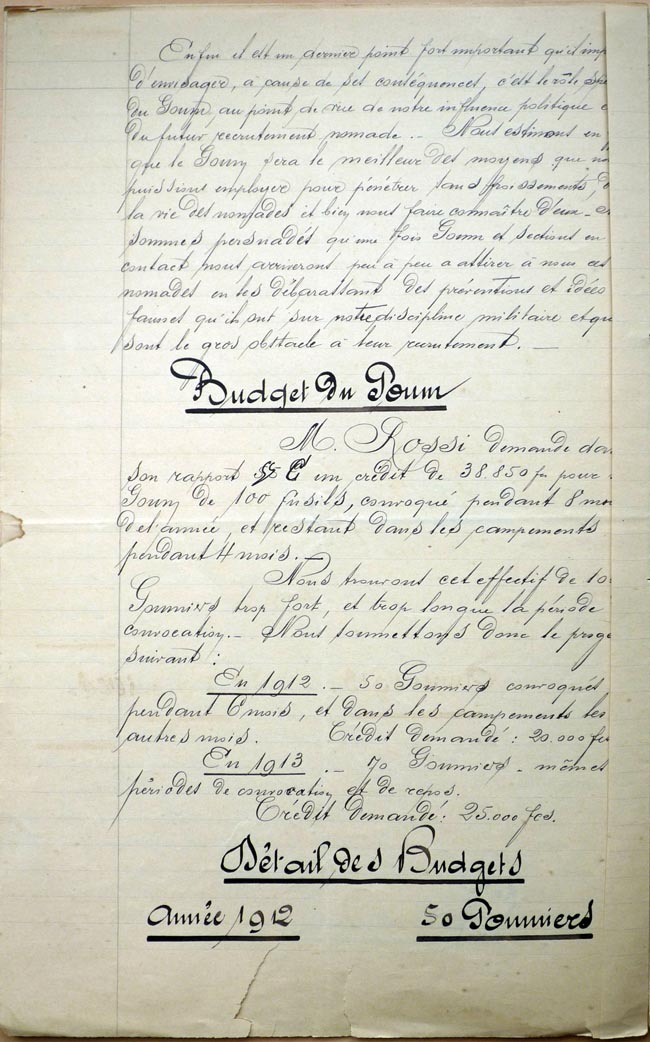 Enfin il est un dernier point fort important qu'il imp
d'envisager, à cause de ses conséquences, c'est le rôle
du Goum au point de vue de notre influence politique e
du futur recrutement nomade. — Nous estimons en
que le Goum sera le meilleur des moyens que no
puissions employer pour pénétrer sans froissements, d
la vie des nomades et bien nous faire connaître d'eux. —
sommes persuadés qu'une fois Goum et sections en
contact nous arriverons peu à peu a attirer à nous ces
nomades en les débarassant des préventions et idées
fausses qu'ils ont sur notre discipline militaire et qu
sont le gros obstacle à leur recrutement. —
Budget du Goum
M. Rossi demande da
son rapport un crédit de 38.850 f pour
Goum de 100 fusils, convoqué pendant 8 mo
de l'année, et restant dans les campements
pendant 4 mois. —
Nous trouvons cet effectif de 10
Goumiers trop fort, et trop longue la période
convocation. — Nous soumettons donc le proje
suivant :
En 1912. — 50 Goumiers convoqués
pendant 6 mois, et dans les campements les
autres mois. Crédit demandé : 20.000 fcs
En 1913 — 70 Goumiers - mêmes
périodes de convocation et de repos.
Crédit demandé : 25.000 fcs.
Détail des Budgets
Année 1912 50 Goumiers